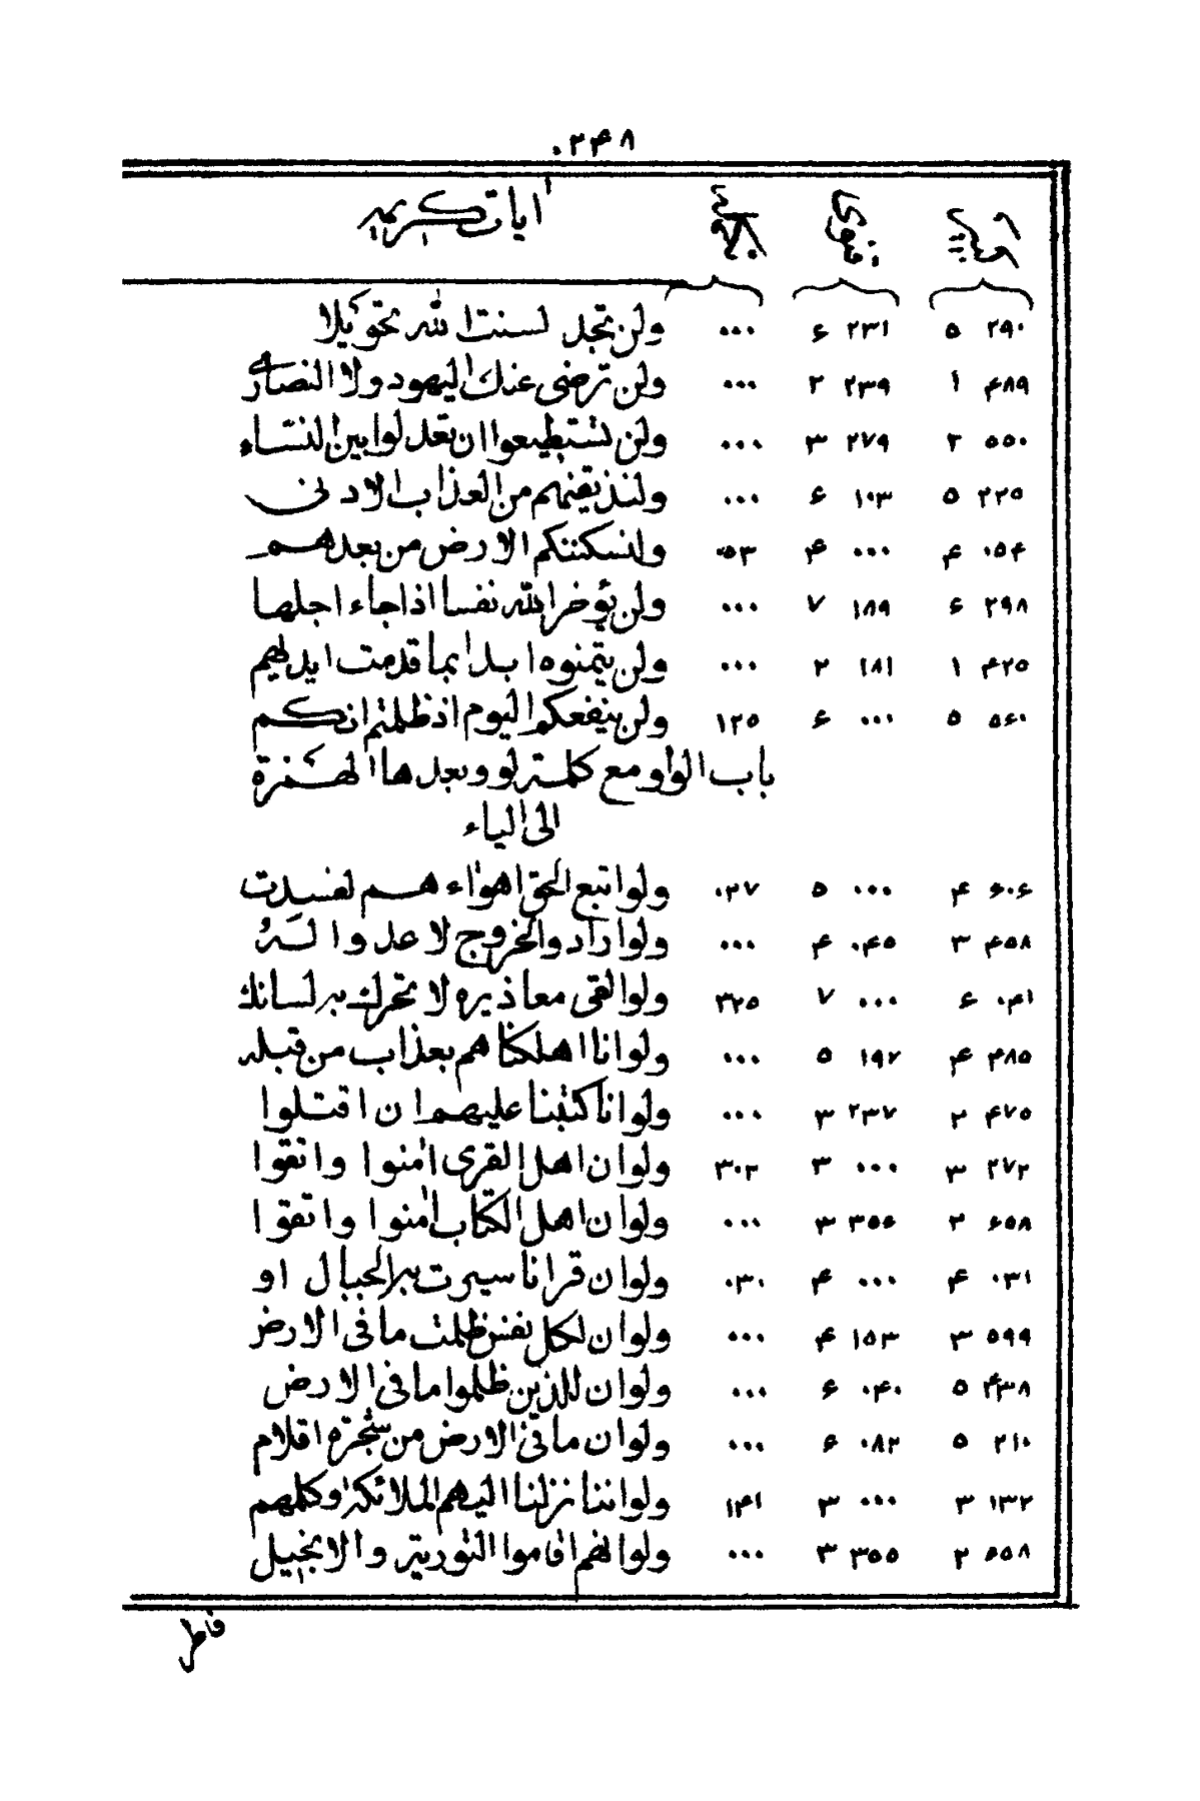 ۰۲۴۸
ايات كريمه
۲۹۰ ۵ ۲۳۱ ۶ ۰۰۰ ولن تجد لسنت الله تحويلا
۴۸۹ ۱ ۲۳۹ ۲ ۰۰۰ ولن ترضى عنك اليهود ولا النصارى
۵۵۰ ۲ ۲۷۹ ۳ ۰۰۰ ولن تستطيعوا ان تعدلوا بين النساء
۲۲۵ ۵ ۱۰۳ ۶ ۰۰۰ ولنذيقنهم من العذاب الادنى
۰۵۴ ۴ ۰۰۰ ۴ ۰۵۳ ولنسكننكم الارض من بعدهم
۲۹۸ ۶ ۱۸۹ ۷ ۰۰۰ ولن يؤخر الله نفسا اذا جاء اجلها
۴۲۵ ۱ ۱۸۱ ۲ ۰۰۰ ولن يتمنوه ابدا بما قدمت ايديهم
۵۶۰ ۵ ۰۰۰ ۶ ۱۲۵ ولن ينفعكم اليوم اذ ظلمتم انكم
باب الواو مع كلمة لو وبعدها الهمزة
الى الياء
۶۰۶ ۴ ۰۰۰ ۵ ۰۲۷ ولو اتبع الحق اهواءهم لفسدت
۴۵۸ ۳ ۰۴۵ ۴ ۰۰۰ ولو ارادوا الخروج لاعدوا له
۰۴۱ ۶ ۰۰۰ ۷ ۳۲۵ ولو القى معاذيره لا تحرك به لسانك
۴۸۵ ۴ ۱۹۷ ۵ ۰۰۰ ولو انا اهلكناهم بعذاب من قبله
۴۷۵ ۲ ۲۳۷ ۳ ۰۰۰ ولو انا كتبنا عليهم ان اقتلوا
۲۷۲ ۳ ۰۰۰ ۳ ۳۰۲ ولو ان اهل القرى امنوا واتقوا
۶۵۸ ۲ ۳۵۶ ۳ ۰۰۰ ولو ان اهل الكتاب امنوا واتقوا
۰۳۱ ۴ ۰۰۰ ۴ ۰۳۰ ولو ان قرانا سيرت به الجبال او
۵۹۹ ۳ ۱۵۳ ۴ ۰۰۰ ولو ان لكل نفس ظلمت ما فى الارض
۴۳۸ ۵ ۰۴۰ ۶ ۰۰۰ ولو ان للذين ظلموا ما فى الارض
۲۱۰ ۵ ۰۸۲ ۶ ۰۰۰ ولو ان ما فى الارض من شجرة اقلام
۱۳۲ ۳ ۰۰۰ ۳ ۱۴۱ ولو اننا نزلنا اليهم الملائكة وكلمهم
۵۵۸ ۲ ۳۵۵ ۳ ۰۰۰ ولو انهم اقاموا التورية والانجيل
فاطر